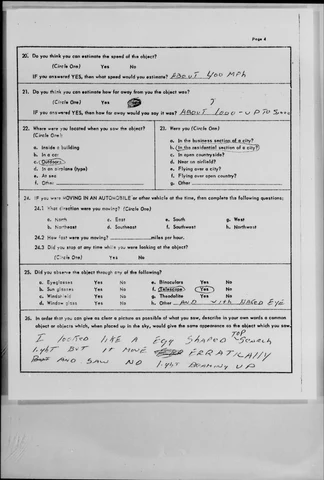 Page 4
20. Do you think you can estimate the speed of the object?
(Circle One) Yes No
IF you answered YES, then what speed would you estimate? ABOUT 400 MPH
21. Do you think you can estimate how far away from you the object was?
(Circle One) Yes ?
IF you answered YES, then how far away would you say it was? ABOUT 1000 - UP TO 5000
22. Where were you located when you saw the object? (Circle One)
a. Inside a building
b. In a car
c. Outdoors
d. In an airplane (type)
e. At sea
f. Other
23. Were you (Circle One)
a. In the business section of a city?
b. In the residential section of a city?
c. In open countryside?
d. Near an airfield?
e. Flying over a city?
f. Flying over open country?
g. Other
24. IF you were MOVING IN AN AUTOMOBILE or other vehicle at the time, then complete the following questions:
24.1 What direction were you moving? (Circle One)
a. North c. East e. South g. West
b. Northeast d. Southeast f. Southwest h. Northwest
24.2 How fast were you moving? miles per hour.
24.3 Did you stop at any time while you were looking at the object?
(Circle One) Yes No
25. Did you observe the object through any of the following?
a. Eyeglasses Yes No e. Binoculars Yes No
b. Sun glasses Yes No f. Telescope Yes No
c. Windshield Yes No g. Theodolite Yes No
d. Window glass Yes No h. Other AND WITH NAKED EYE
26. In order that you can give as clear a picture as possible of what you saw, describe in your own words a common
object or objects which, when placed up in the sky, would give the same appearance as the object which you saw.
I looked LIKE A EGG SHAPED TOP SEARCH
light BUT IT MOVE ERRATICALLY
AND SAW NO light BEAMING UP